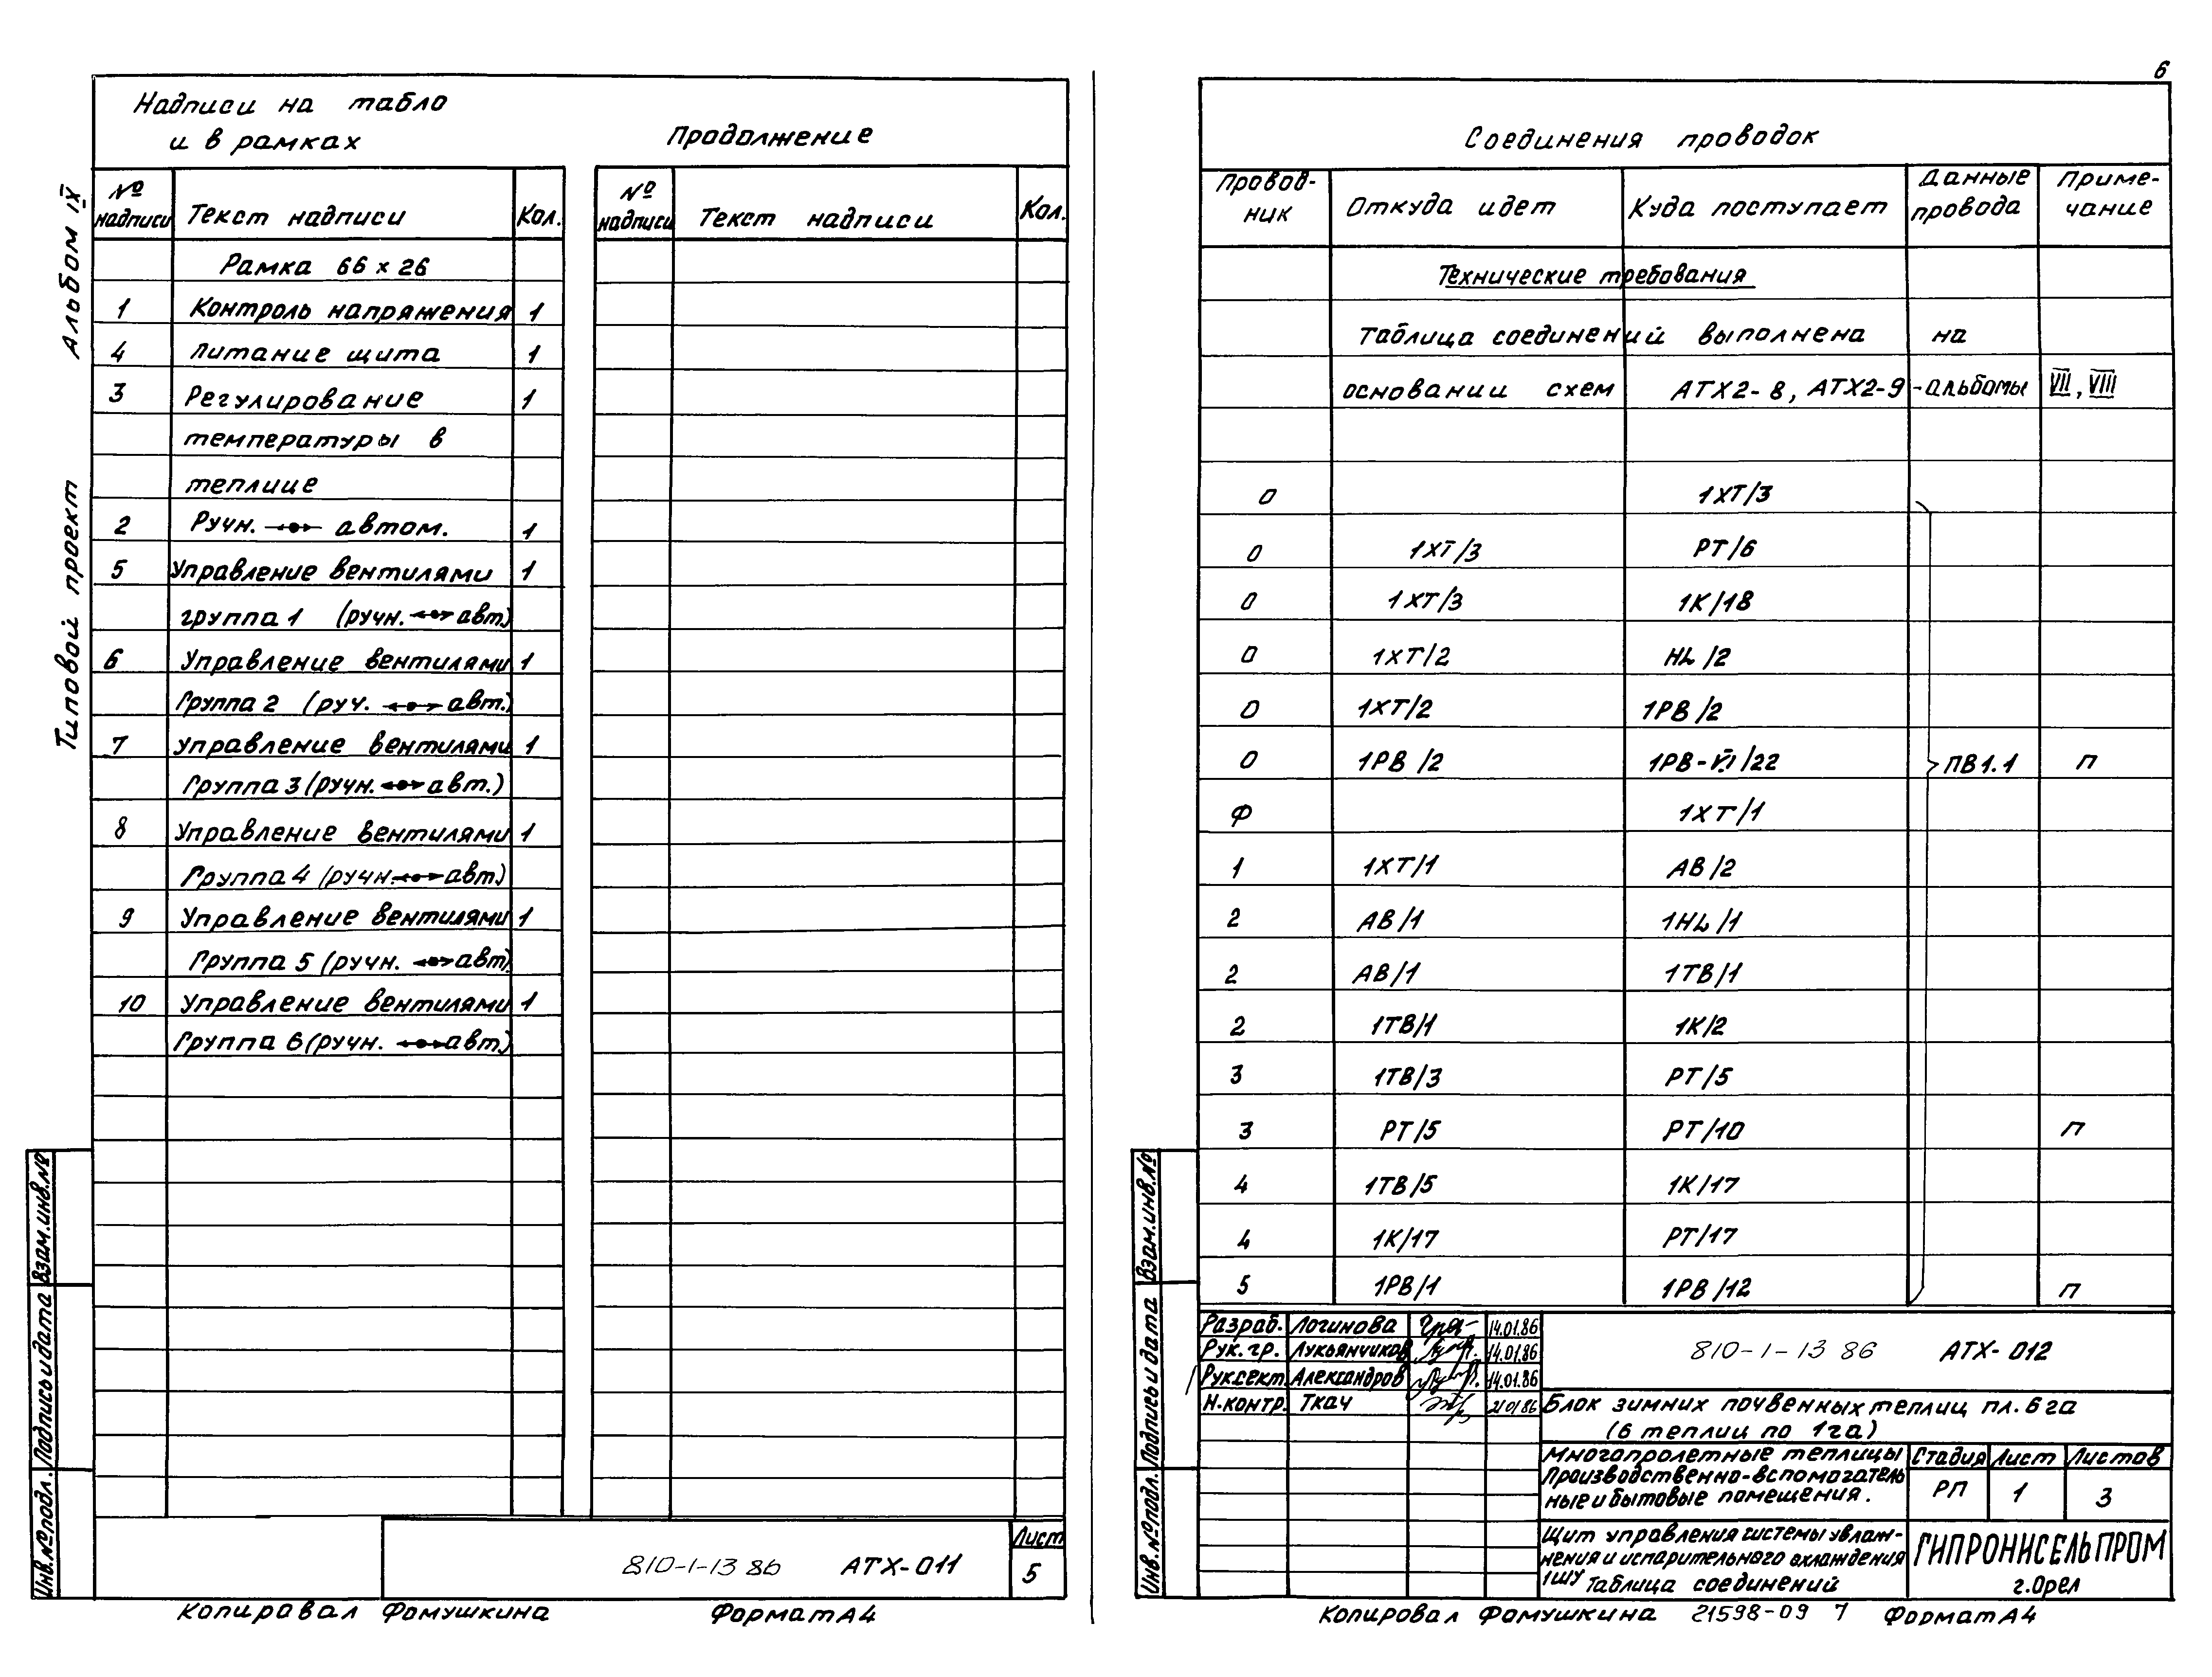 Альбом IX
Типовой проект
Надписи на табло
и в рамках
Продолжение
№ надписи Текст надписи Кол.
№ надписи Текст надписи Кол.
Рамка 66 х 26
1 Контроль напряжения 1
4 Питание щита 1
3 Регулирование 1
температуры в
теплице
2 Ручн. автом. 1
5 Управление вентилями 1
группа 1 (ручн. авт.)
6 Управление вентилями 1
Группа 2 (руч. авт.)
7 Управление вентилями 1
Группа 3 (ручн. авт.)
8 Управление вентилями 1
Группа 4 (ручн. авт.)
9 Управление вентилями 1
Группа 5 (ручн. авт.)
10 Управление вентилями 1
Группа 6 (ручн. авт.)
Взам.инв.№
Подпись и дата
Инв.№ подл.
810-1-13 86 АТХ-011
Лист
5
Копировал Фомушкина Формат А4
6
Соединения проводок
Провод-ник Откуда идет Куда поступает Данные провода Приме-чание
Технические требования
Таблица соединений выполнена на
основании схем АТХ2-8, АТХ2-9 -альбомы VII, VIII
0 1ХТ/3
0 1ХТ/3 РТ/6
0 1ХТ/3 1К/18
0 1ХТ/2 HL/2
0 1ХТ/2 1РВ/2
0 1РВ/2 1РВ-VI/22 ПВ1.1 п
Ф 1ХТ/1
1 1ХТ/1 АВ/2
2 АВ/1 1HL/1
2 АВ/1 1ТВ/1
2 1ТВ/1 1К/2
3 1ТВ/3 РТ/5
3 РТ/5 РТ/10 п
4 1ТВ/5 1К/17
4 1К/17 РТ/17
5 1РВ/1 1РВ/12 п
Взам.инв.№
Подпись и дата
Инв.№ подл.
Разраб. Логинова 14.01.86
Рук.гр. Лукьянчиков 14.01.86
Рук.сект. Александров 14.01.86
Н.контр. Ткач 21 01 86
810-1-13 86 АТХ-012
Блок зимних почвенных теплиц пл. 6 га
(6 теплиц по 1га)
Многопролетные теплицы
Производственно-вспомогатель
ные и бытовые помещения.
Стадия Лист Листов
РП 1 3
Щит управления системы увлаж-
нения и испарительного охлаждения
1ШУ Таблица соединений
ГИПРОНИСЕЛЬПРОМ
г.Орел
Копировал Фомушкина 21598-09 7 Формат А4